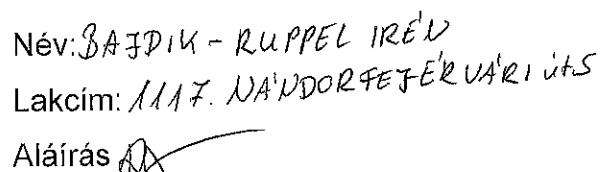 Név: BAJDIK - RUPPEL IRÉN
Lakcím: 1117. NÁNDORFEJÉRVÁRI út 5
Aláírás